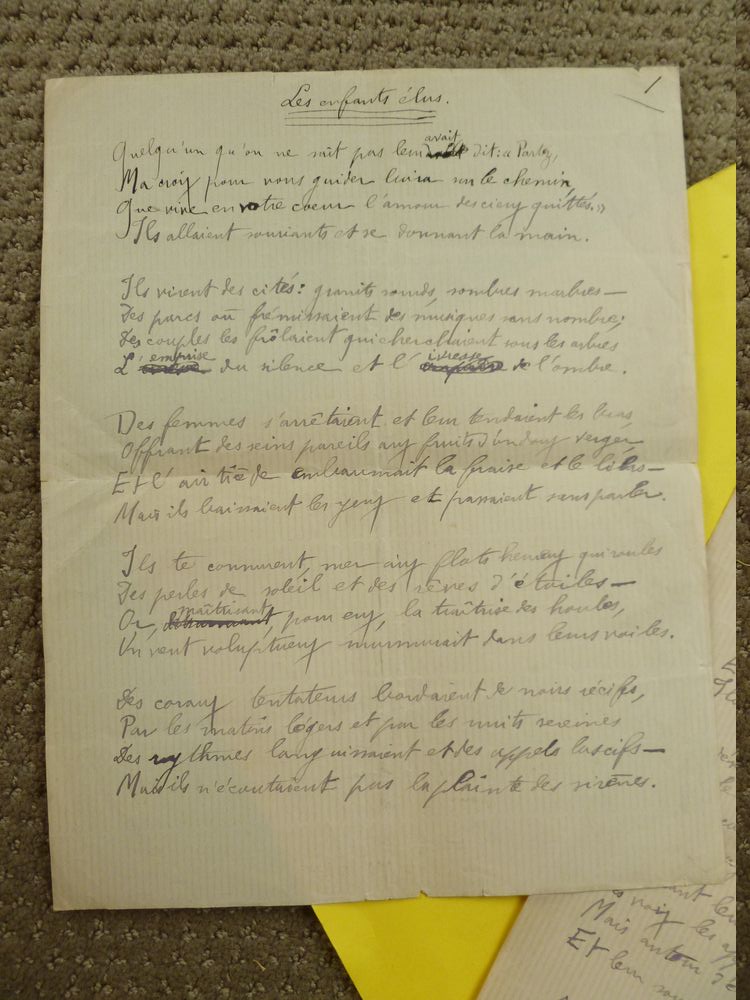 Les enfants élus.
1
Quelqu'un qu'on ne sait pas leur avait dit : « Partez,
Ma croix pour vous guider luira sur le chemin,
Que vive en votre coeur l'amour des cieux quittés. »
Ils allaient souriants et se donnant la main.
Ils virent des cités : granits sourds, sombres marbres —
Des parcs où frémissaient des musiques sans nombre ;
Des couples les frôlaient qui cherchaient sous les arbres
L'emprise du silence et l'ivresse de l'ombre.
Des femmes s'arrêtaient et leur tendaient les bras,
Offrant des seins pareils aux fruits d'un doux verger,
Et l'air tiède embaumait la fraise et le lilas —
Mais ils baissaient les yeux et passaient sans parler.
Ils te connurent, mer aux flots heureux qui roules
Des perles de soleil et des rêves d'étoiles —
Or, maîtrisant, pour eux, la traîtrise des houles,
Un vent voluptueux murmurait dans leurs voiles.
Des coraux tentateurs bordaient de noirs récifs,
Par les matins légers et par les nuits sereines
Des rythmes languissaient et des appels lascifs —
Mais ils n'écoutaient pas la plainte des sirènes.
voix les
Mais autour
Et leur